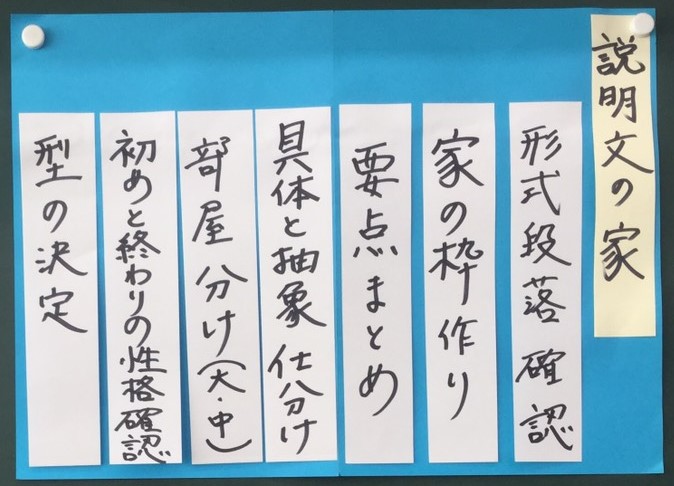 説明文の家
形式段落確認
家の枠作り
要点まとめ
具体と抽象仕分け
部屋分け(大・中)
初めと終わりの性格確認
型の決定